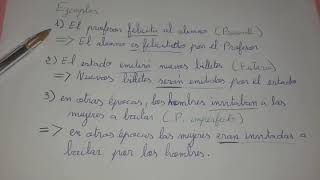 Ejemplos
1) El profesor felicita al alumno (Presente)
=> El alumno es felicitado por el Profesor
2) El estado emitirá nuevos billetes (Futuro)
=> Nuevos billetes serán emitidos por el estado
3) en otras épocas, los hombres invitaban a las
mujeres a bailar (P. imperfecto)
=> en otras épocas las mujeres eran invitadas a
bailar por los hombres.